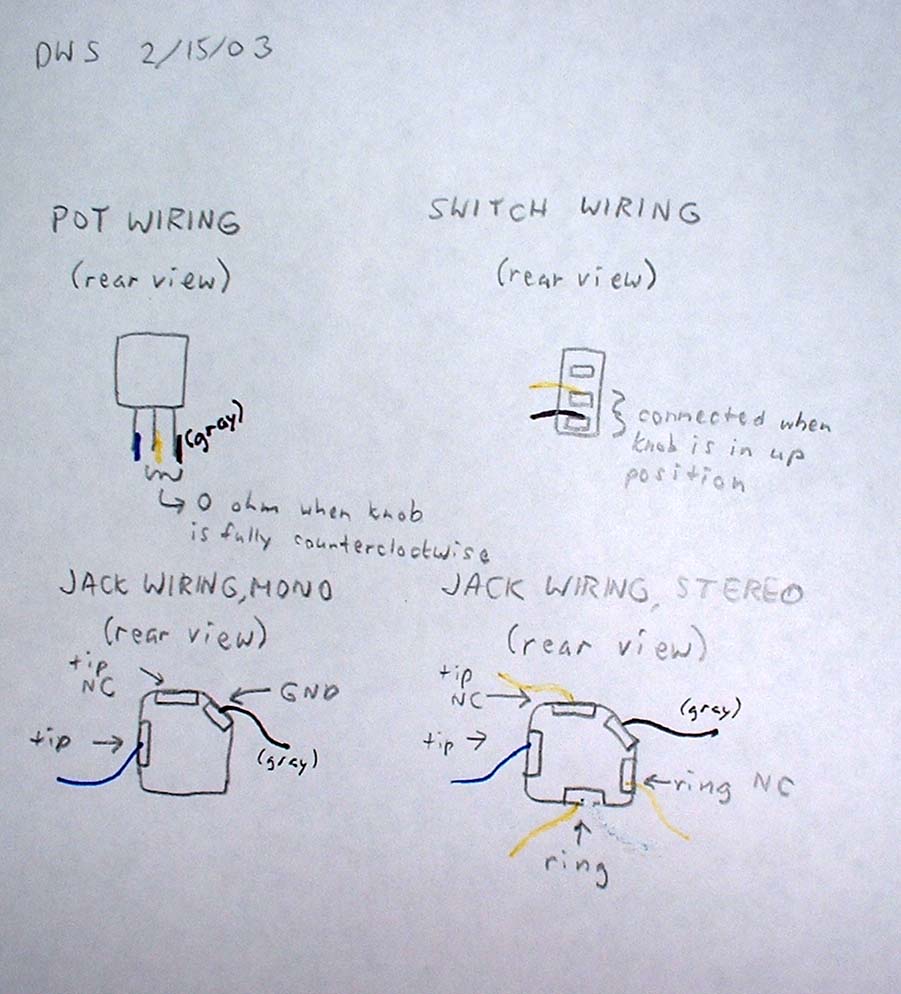 DWS 2/15/03
POT WIRING
(rear view)
(gray)
0 ohm when knob
is fully counterclockwise
SWITCH WIRING
(rear view)
connected when
knob is in up
position
JACK WIRING, MONO
(rear view)
tip
NC
GND
tip
(gray)
JACK WIRING, STEREO
(rear view)
tip
NC
(gray)
tip
ring NC
ring